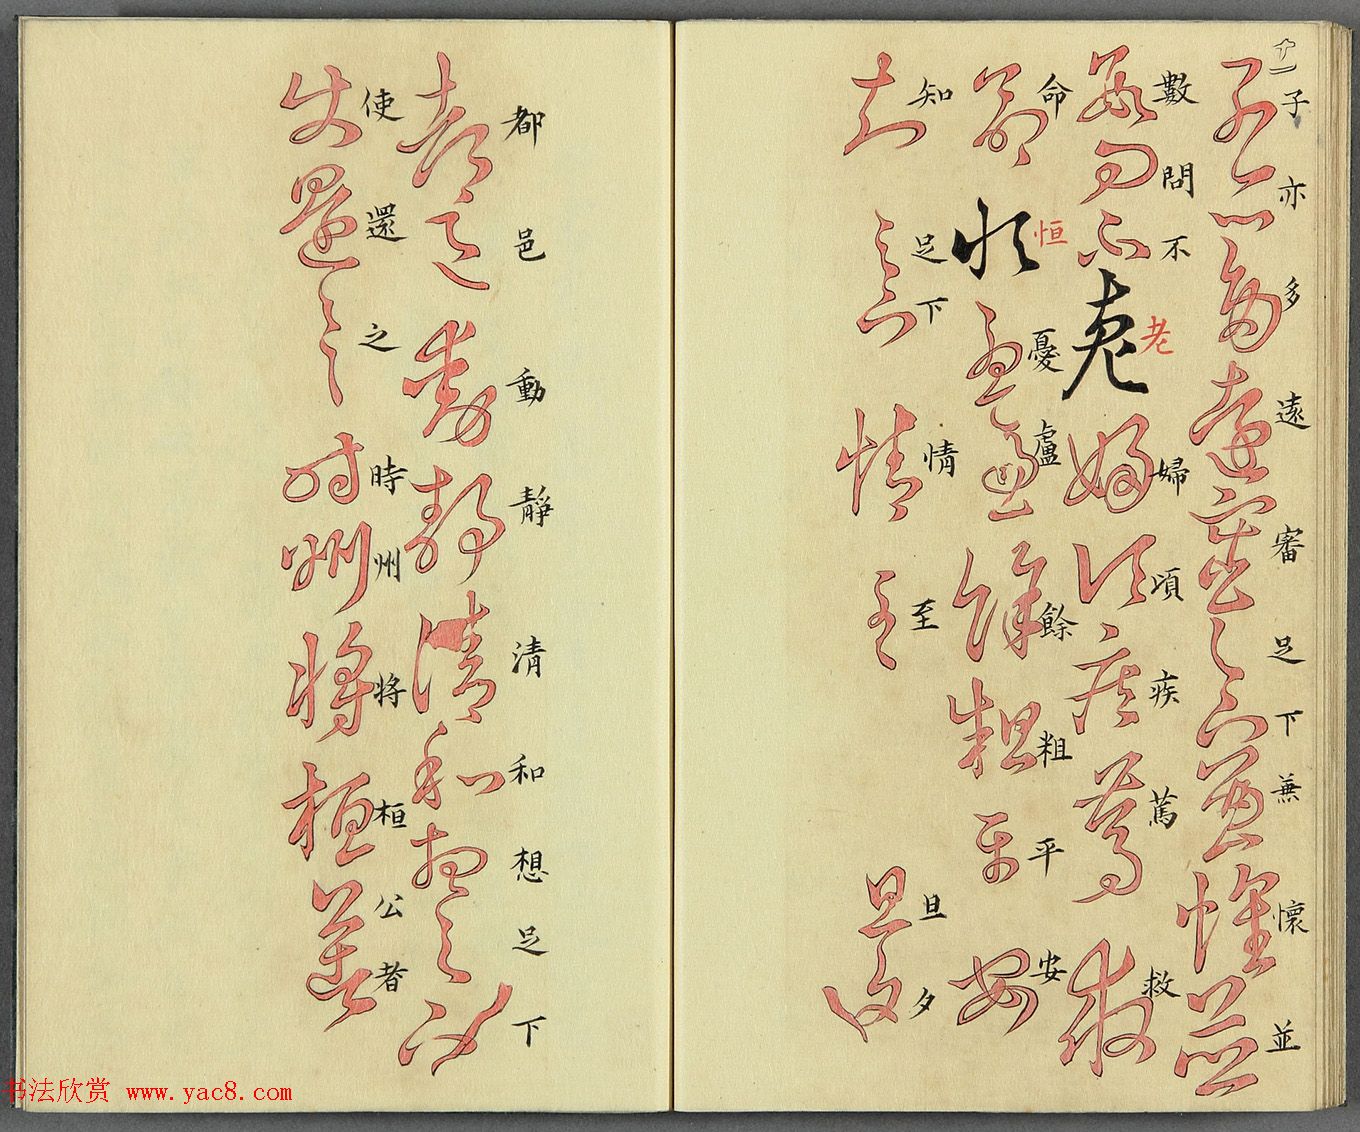 子亦多遠審足下兼懷並
數問不老婦頃疾篤救
命恒憂盧餘粗平安
知足下情至旦夕
都邑動靜清和想足下
使還之時州將桓公者
书法欣赏 www.yac8.com